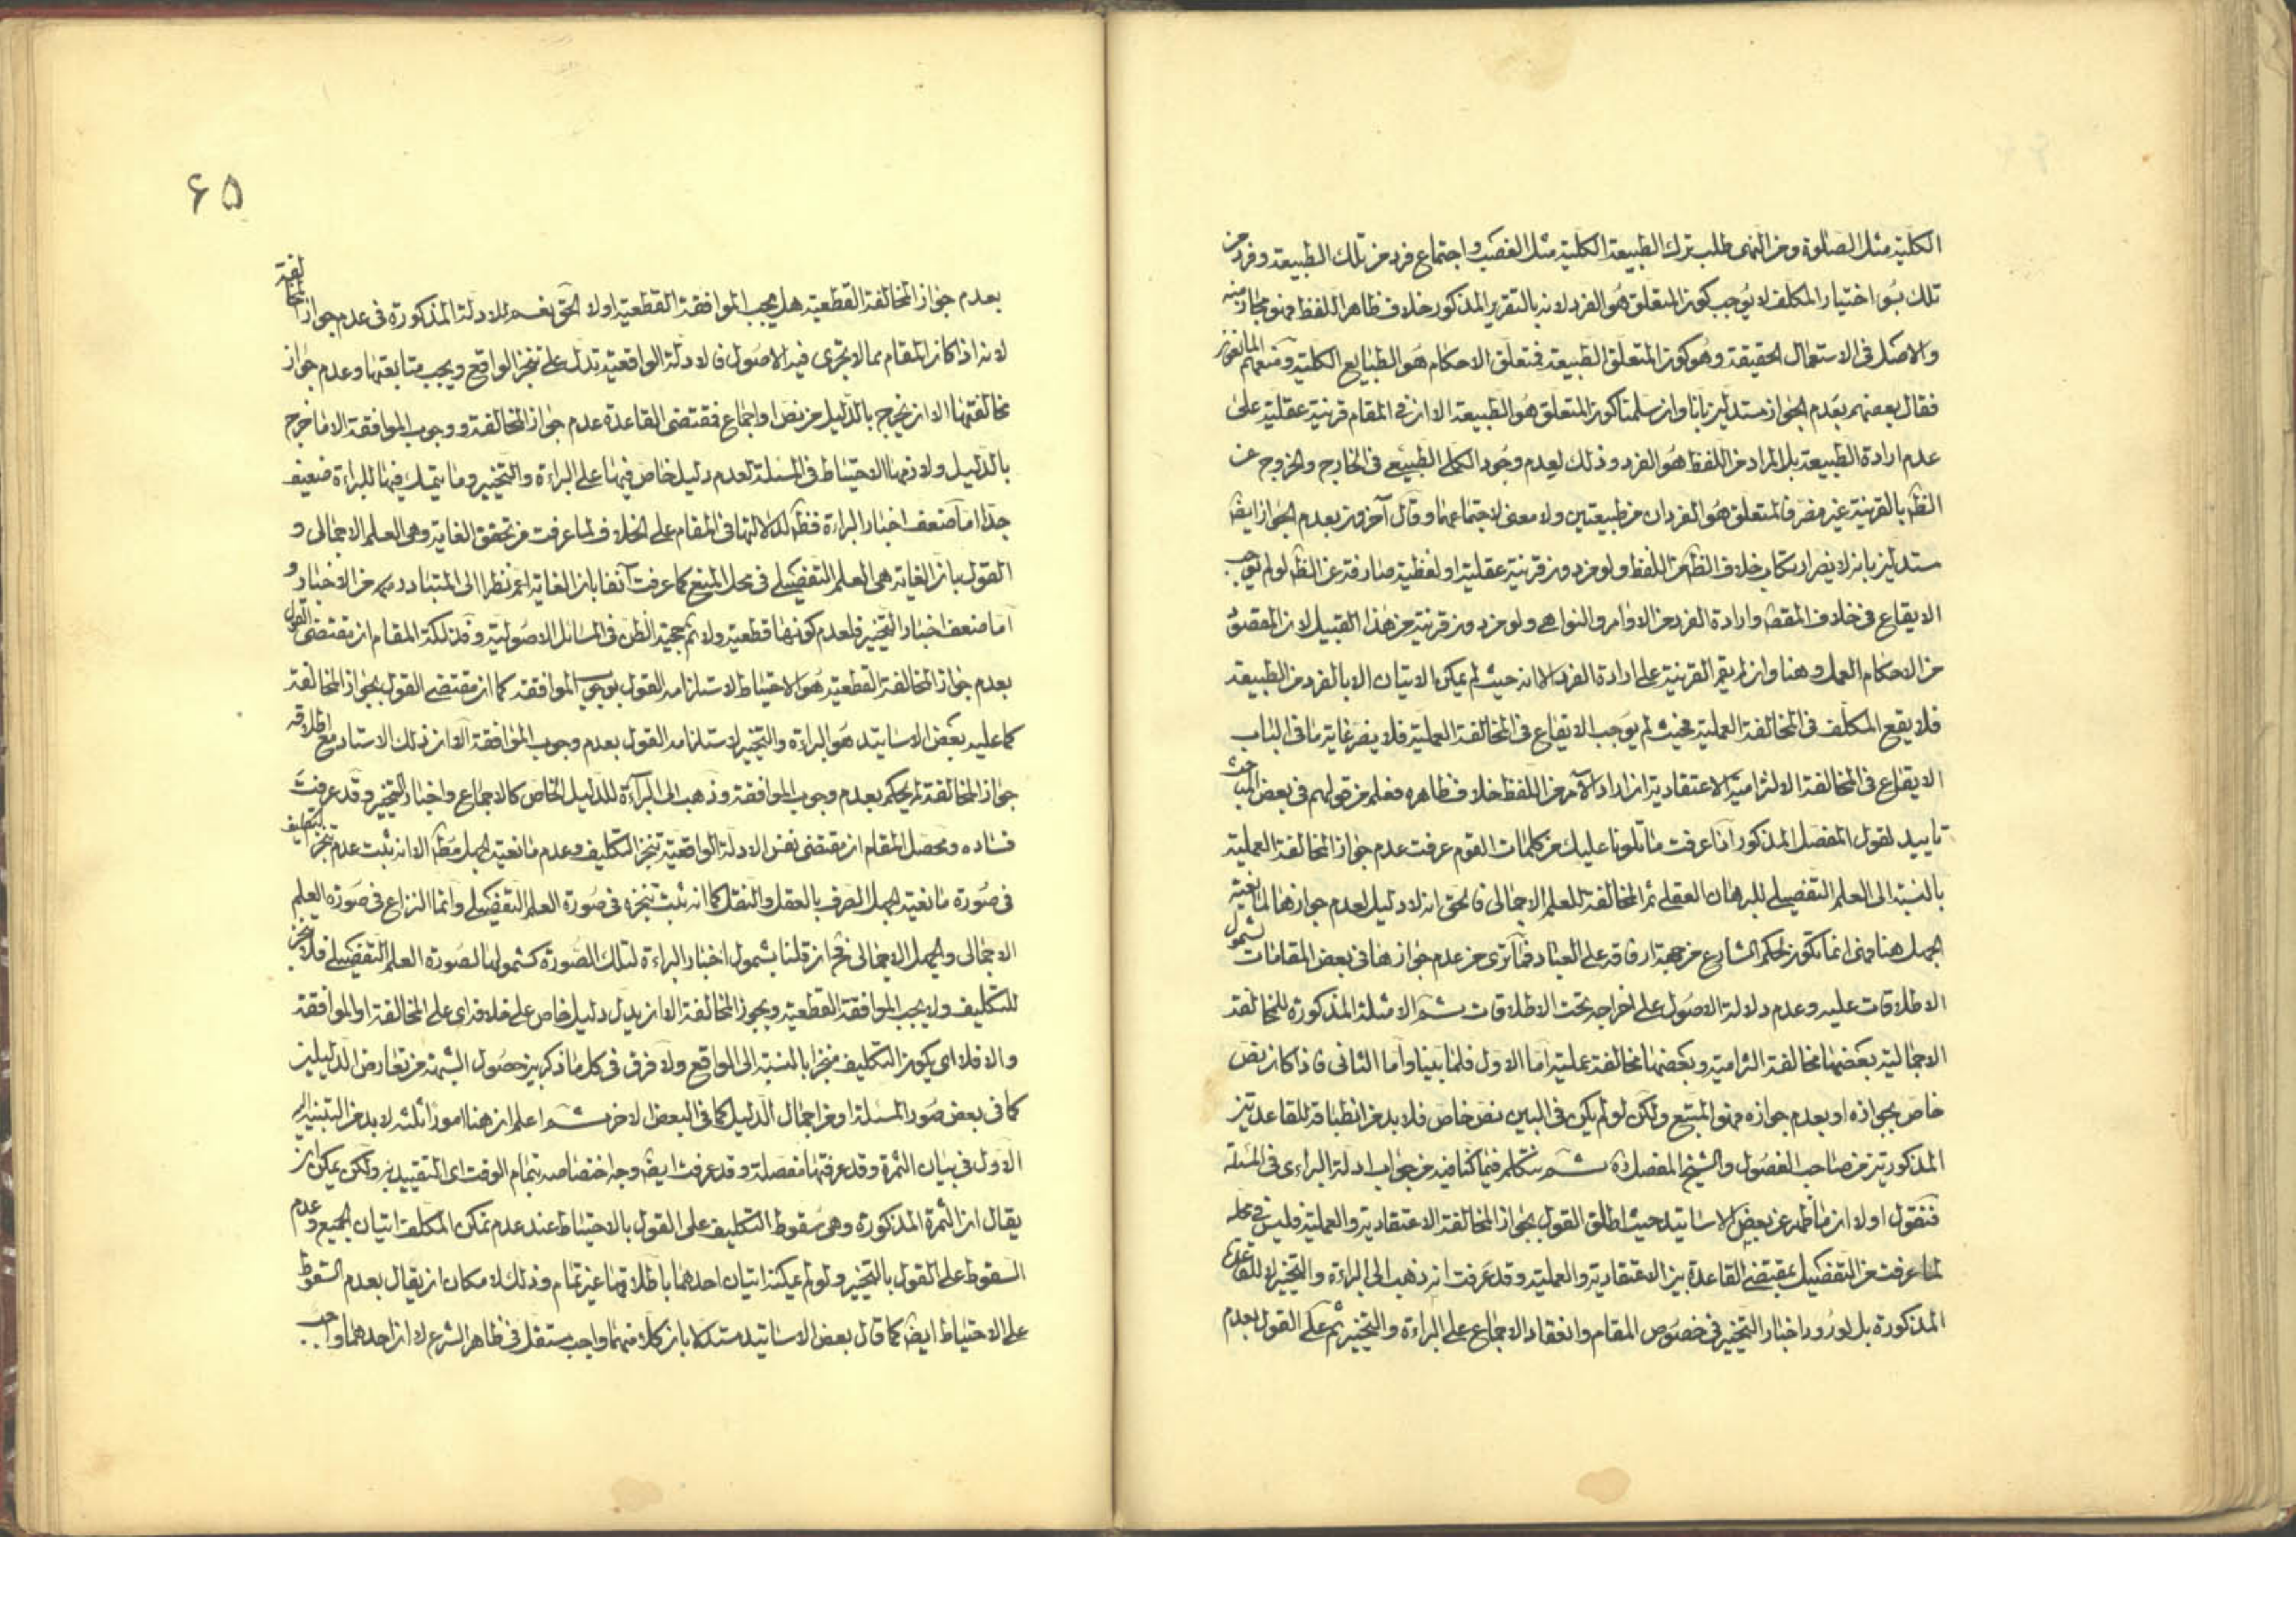 الكلية مثل الصلوة ومن النهى طلب ترك الطبيعة الكلية مثل الغصب واجتماع فرد من تلك الطبيعة وفرد من
تلك بسوء اختيار المكلف لا يوجب كون المتعلق هو الفرد لانه بالتقرير المذكور خلاف ظاهر اللفظ فهو مجاز منه
والاصل فى الاستعمال الحقيقة وهو كون المتعلق الطبيعة فمتعلق الاحكام هو الطبايع الكلية ومنعهم المانعون
فقال بعضهم بعدم الجواز مستدلين بانا وان سلمنا كون المتعلق هو الطبيعة الا ان فى المقام قرنية عقلية على
عدم ارادة الطبيعة بل المراد من اللفظ هو الفرد وذلك لعدم وجود الكلى الطبيعى فى الخارج والخروج عن
الظ بالقرنية غير مضر فالمتعلق هو الفردان من طبيعتين ولا معنى لاجتماعهما وقال آخرون بعدم الجواز ايض
مستدلين بانه لا يضر ارتكاب خلاف الظ من اللفظ ولو من دون قرنية عقلية او لفظية صارفة عن الظ لو لم يوجب
الايقاع فى خلاف المقص وارادة الفرد من الاوامر والنواهى ولو من دون قرنية من هذا القبيل لان المقصود
من الاحكام العمل وهنا وان لم يقم القرنية على ارادة الفرد الا انه حيث لم يمكن الاتيان الا بالفرد من الطبيعة
فلا يقع المكلف فى المخالفة العملية فحيث لم يوجب الايقاع فى المخالفة العملية فلا يضر غاية ما فى الباب
الايقاع فى المخالفة الالتزامية الاعتقادية ان اراد الآمر من اللفظ خلاف ظاهره فعلم من قولهم فى بعض المباحث
تاييد لقول المفصل المذكور اذا عرفت ما تلونا عليك من كلمات القوم عرفت عدم جواز المخالفة العملية
بالنسبة الى العلم التفصيلى للبرهان العقلى ثم المخالفة للعلم الاجمالى فالحق انه لا دليل لعدم جوازها لمانعية
الجهل هنا فهى انما تكون لحكم الشارع من جهة ارفاقه على العباد فما ترى من عدم جوازها فى بعض المقامات لشمول
الاطلاقات عليه وعدم دلالة الاصول على اخراجه تحت الاطلاقات ثم الامثلة المذكورة للمخالفة
الاجمالية بعضها مخالفة التزامية وبعضها مخالفة عملية اما الاول فلما بينا واما الثانى فاذا كان نص
خاص بجوازه او بعدم جوازه فهو المتبع ولكن لو لم يكن فى البين نص خاص فلا بد من انطباقه للقاعدتين
المذكورتين من صاحب الفصول والشيخ المفصل ره ثم نتكلم فيما كنا فيه من جواب ادلة البرائى فى المسئلة
فنقول اولا ان ما ظهر عن بعض الاساتيد حيث اطلق القول بجواز المخالفة الاعتقادية والعملية فليس فى محله
لما عرفت من التفصيل بمقتضى القاعدة بين الاعتقادية والعملية وقد عرفت انه ذهب الى البراءة والتخيير لا للقاعدة
المذكورة بل لورود اخبار التخيير فى خصوص المقام وانعقاد الاجماع على البراءة والتخيير ثم على القول بعدم
۶۵
بعدم جواز المخالفة القطعية هل يجب الموافقة القطعية اولا الحق نعم للادلة المذكورة فى عدم جواز المخالفة
لانه اذا كان المقام بما لا تجرى فيه الاصول فالادلة الواقعية تدل على تنجز الواقع ويجب متابعتها وعدم جواز
مخالفتها الا ان يخرج بالدليل من نص او اجماع فمقتضى القاعدة عدم جواز المخالفة ووجوب الموافقة الا ما خرج
بالدليل ولازمها الاحتياط فى المسئلة لعدم دليل خاص فيها على البراءة والتخيير وما يتمسك فيها للبراءة ضعيف
جدا اما ضعف اخبار البراءة فظ لدلالتها فى المقام على الخلاف لما عرفت من تحقق الغاية وهى العلم الاجمالى و
القول بان الغاية هى العلم التفصيلى فى محل المنع كما عرفت آنفا بان الغاية اعم نظرا الى المتبادر منه من الاخبار و
اما ضعف اخبار التخيير فلعدم كونها قطعية ولا ثم حجية الظن فى المسائل الاصولية وفذلكة المقام ان مقتضى القول
بعدم جواز المخالفة القطعية هو الاحتياط لاستلزامه القول بوجوب الموافقة كما ان مقتضى القول بجواز المخالفة
كما عليه بعض الاساتيد هو البراءة والتخيير لاستلزامه القول بعدم وجوب الموافقة الا ان ذلك الاستاد مع اطلاقه
جواز المخالفة لم يحكم بعدم وجوب الموافقة وذهب الى البراءة للدليل الخاص كالاجماع واخبار التخيير وقد عرفت
فساده ومحصل المقام ان مقتضى نفس الادلة الواقعية تنجز التكليف وعدم مانعية الجهل مط الا انه يثبت عدم تنجز التكليف
فى صورة مانعية الجهل الصرف بالعقل والنقل كما انه يثبت تنجزه فى صورة العلم التفصيلى وانما النزاع فى صورة العلم
الاجمالى والجهل الاجمالى فح ان قلنا بشمول اخبار البراءة لتلك الصورة كشمولها لصورة العلم التفصيلى فلا تنجز
للتكليف ولا يجب الموافقة القطعية ويجوز المخالفة الا ان يدل دليل خاص على خلافه اى على المخالفة او الموافقة
والا فلا اى يكون التكليف منجزا بالنسبة الى الواقع ولا فرق فى كل ما ذكر بين حصول الشبهة من تعارض الدليلين
كما فى بعض صور المسئلة او من اجمال الدليل كما فى البعض الاخر ثم اعلم ان هنا امورا ثلثة لا بد من التنبيه اليه
الاول فى بيان الثمرة وقد عرفتها مفصلة وقد عرفت ايض وجه اختصاصه بتمام الوقت اى التقييد به ولكن يمكن ان
يقال ان الثمرة المذكورة وهى سقوط التكليف على القول بالاحتياط عند عدم تمكن المكلف اتيان الجميع وعدم
السقوط على القول بالتخيير ولو لم يمكنه اتيان احدهما باطلاقها غير تمام وذلك لامكان ان يقال بعدم السقوط
على الاحتياط ايض كما قال بعض الاساتيد مستدلا بان كلا منهما واجب مستقل فى ظاهر الشرع لا ان احدهما واجب